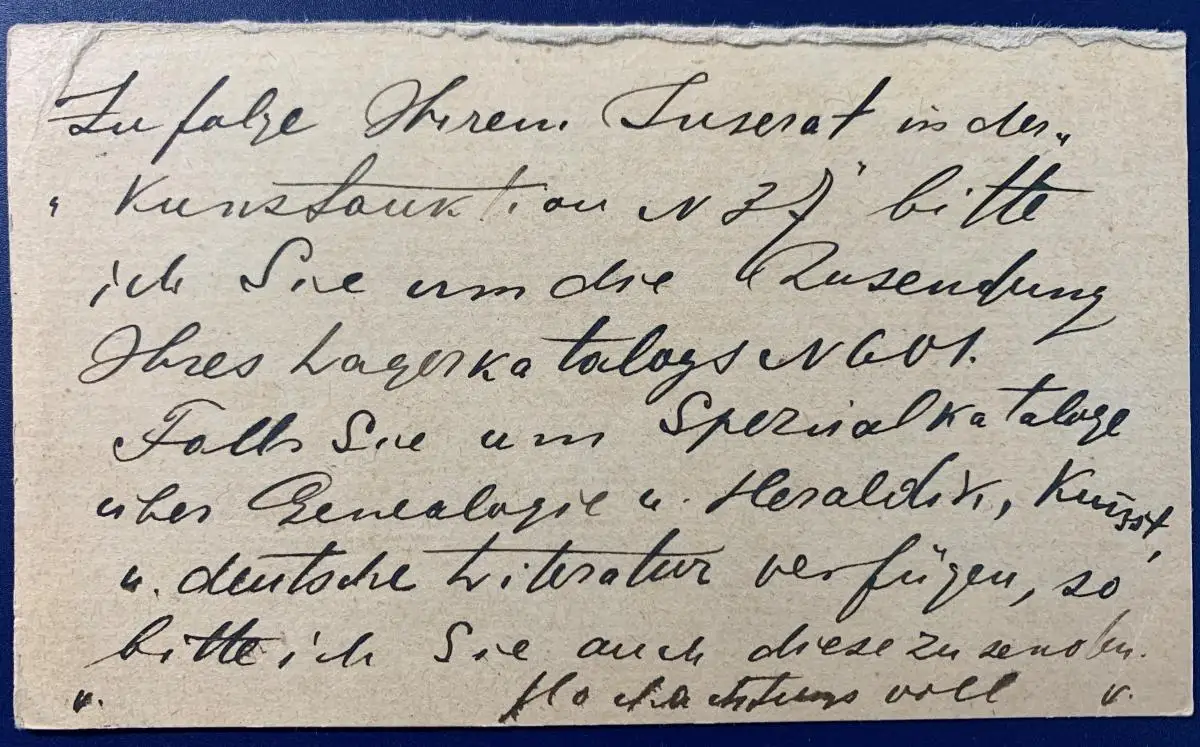 Zu folge Ihrem Inserat in der „
" Kunstauktion N 37" bitte
ich Sie um die Zusendung
Ihres Lagerkatalogs N 601.
Falls Sie um Spezialkataloge
über Genealogie u. Heraldik, Kunst,
u. deutsche Literatur verfügen, so
bitte ich Sie auch diese zusenden.
Hochachtungsvoll